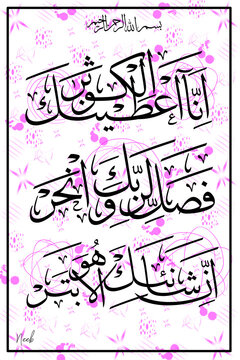 بسم الله الرحمن الرحيم
إِنَّا أَعْطَيْنَاكَ الْكَوْثَرَ
فَصَلِّ لِرَبِّكَ وَانْحَرْ
إِنَّ شَانِئَكَ هُوَ الْأَبْتَرُ
Neeb